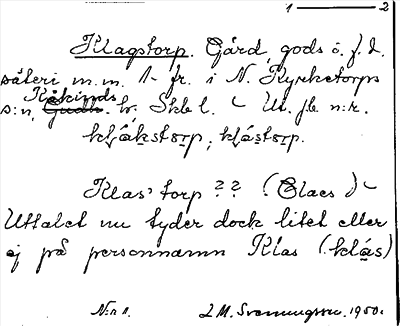 1 — 2
Klagstorp. Gård, gods o. f. d.
säteri m.m. 1 fr. i N. Kyrketorps
s:n, Kåkinds hd. Skbl. – Ut. f.b. n:r.
kljákstorp, kljástorp.
Klas' torp ?? (Claes) –
Uttalet nu tyder dock litet eller
ej på personnamn Klas (klás)
N:r 1. L M. Svenungsson. 1950.